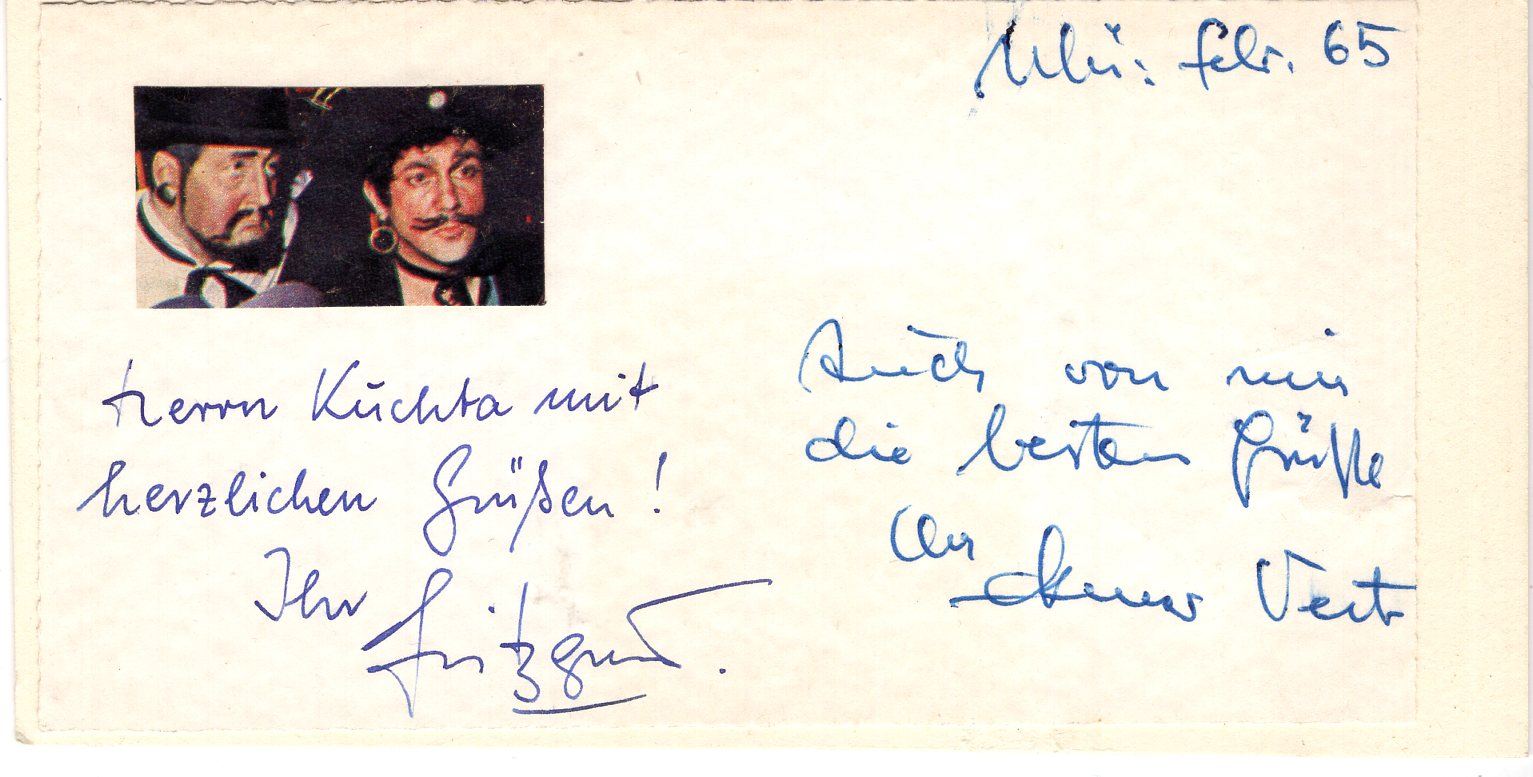 febr. 65
Herrn Kuchta mit
herzlichen Grüßen !
Ihr
Auch von mir
die besten Grüße
Ihr